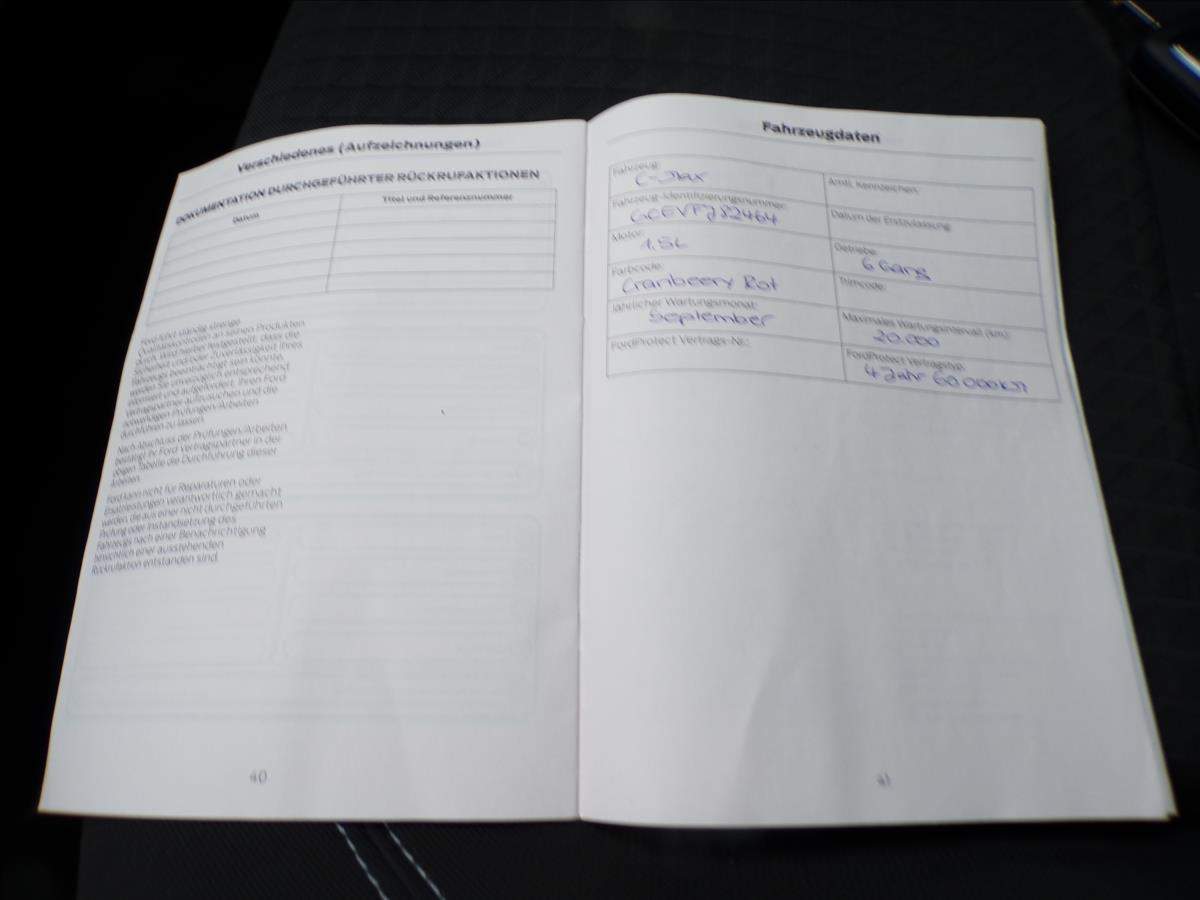 Verschiedenes (Aufzeichnungen)
DOKUMENTATION DURCHGEFÜHRTER RÜCKRUFAKTIONEN
Datum
Titel und Referenznummer
Ford führt ständig strenge
Qualitätskontrollen an seinen Produkten
durch. Wird hierbei festgestellt, dass die
Sicherheit und/oder Zuverlässigkeit Ihres
Fahrzeugs beeinträchtigt sein könnte,
werden Sie unverzüglich entsprechend
informiert und aufgefordert, Ihren Ford
Vertragspartner aufzusuchen und die
notwendigen Prüfungen/Arbeiten
durchführen zu lassen.
Nach Abschluss der Prüfungen/Arbeiten
bestätigt Ihr Ford Vertragspartner in der
obigen Tabelle die Durchführung dieser
Arbeiten.
Ford kann nicht für Reparaturen oder
Ersatzleistungen verantwortlich gemacht
werden, die aus einer nicht durchgeführten
Prüfung oder Instandsetzung des
Fahrzeugs nach einer Benachrichtigung
hinsichtlich einer ausstehenden
Rückrufaktion entstanden sind.
40
Fahrzeugdaten
Fahrzeug:
C-Max
Amtl. Kennzeichen:
Fahrzeug-Identifizierungsnummer:
Datum der Erstzulassung
Motor:
1.5L
Getriebe:
6 Gang
Farbcode:
Cranbeery Rot
Trimcode:
Jährlicher Wartungsmonat:
September
Maximales Wartungsintervall (km):
20.000
FordProtect Vertrags-Nr.:
FordProtect Vertragstyp:
4 Jahr 60.000km
41